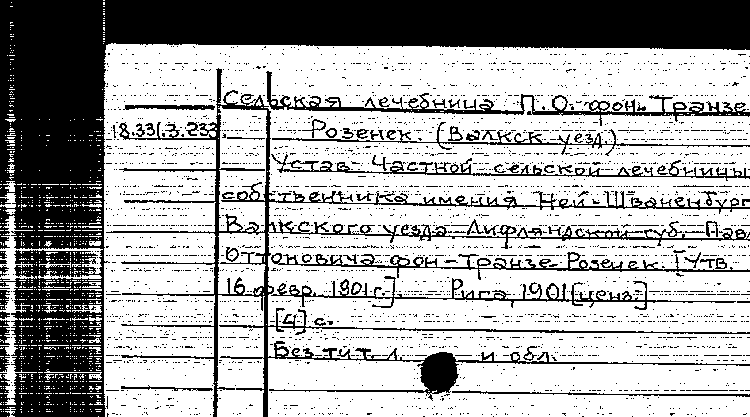 Сельская лечебница П.О. фон-Транзе
18.331.3.233. Розенек. (Валкск. уезд.)
Устав частной сельской лечебницы
собственника имения Ней-Шваненбург
Валкского уезда Лифляндской губ. Павл
Оттоновича фон-Транзе Розенек. [Утв.
16 февр. 1901 г.]. Рига, 1901 [ценз.]
[4] с.
Без тит. л. и обл.